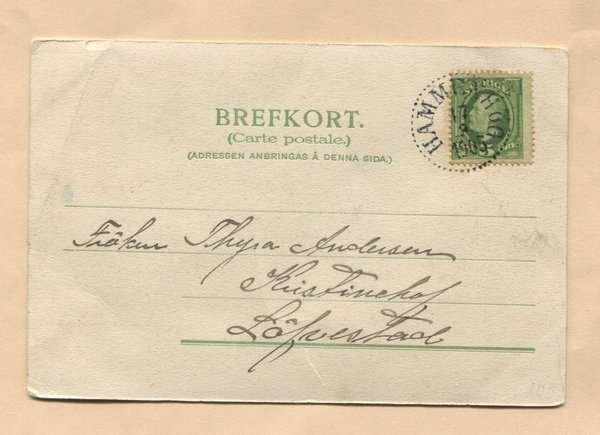 BREFKORT.
(Carte postale.)
(ADRESSEN ANBRINGAS Å DENNA SIDA.)
SVERIGE
HAMMENHÖG
1903
Fröken Thyra Andersen
Kristinehof
Löfvestad